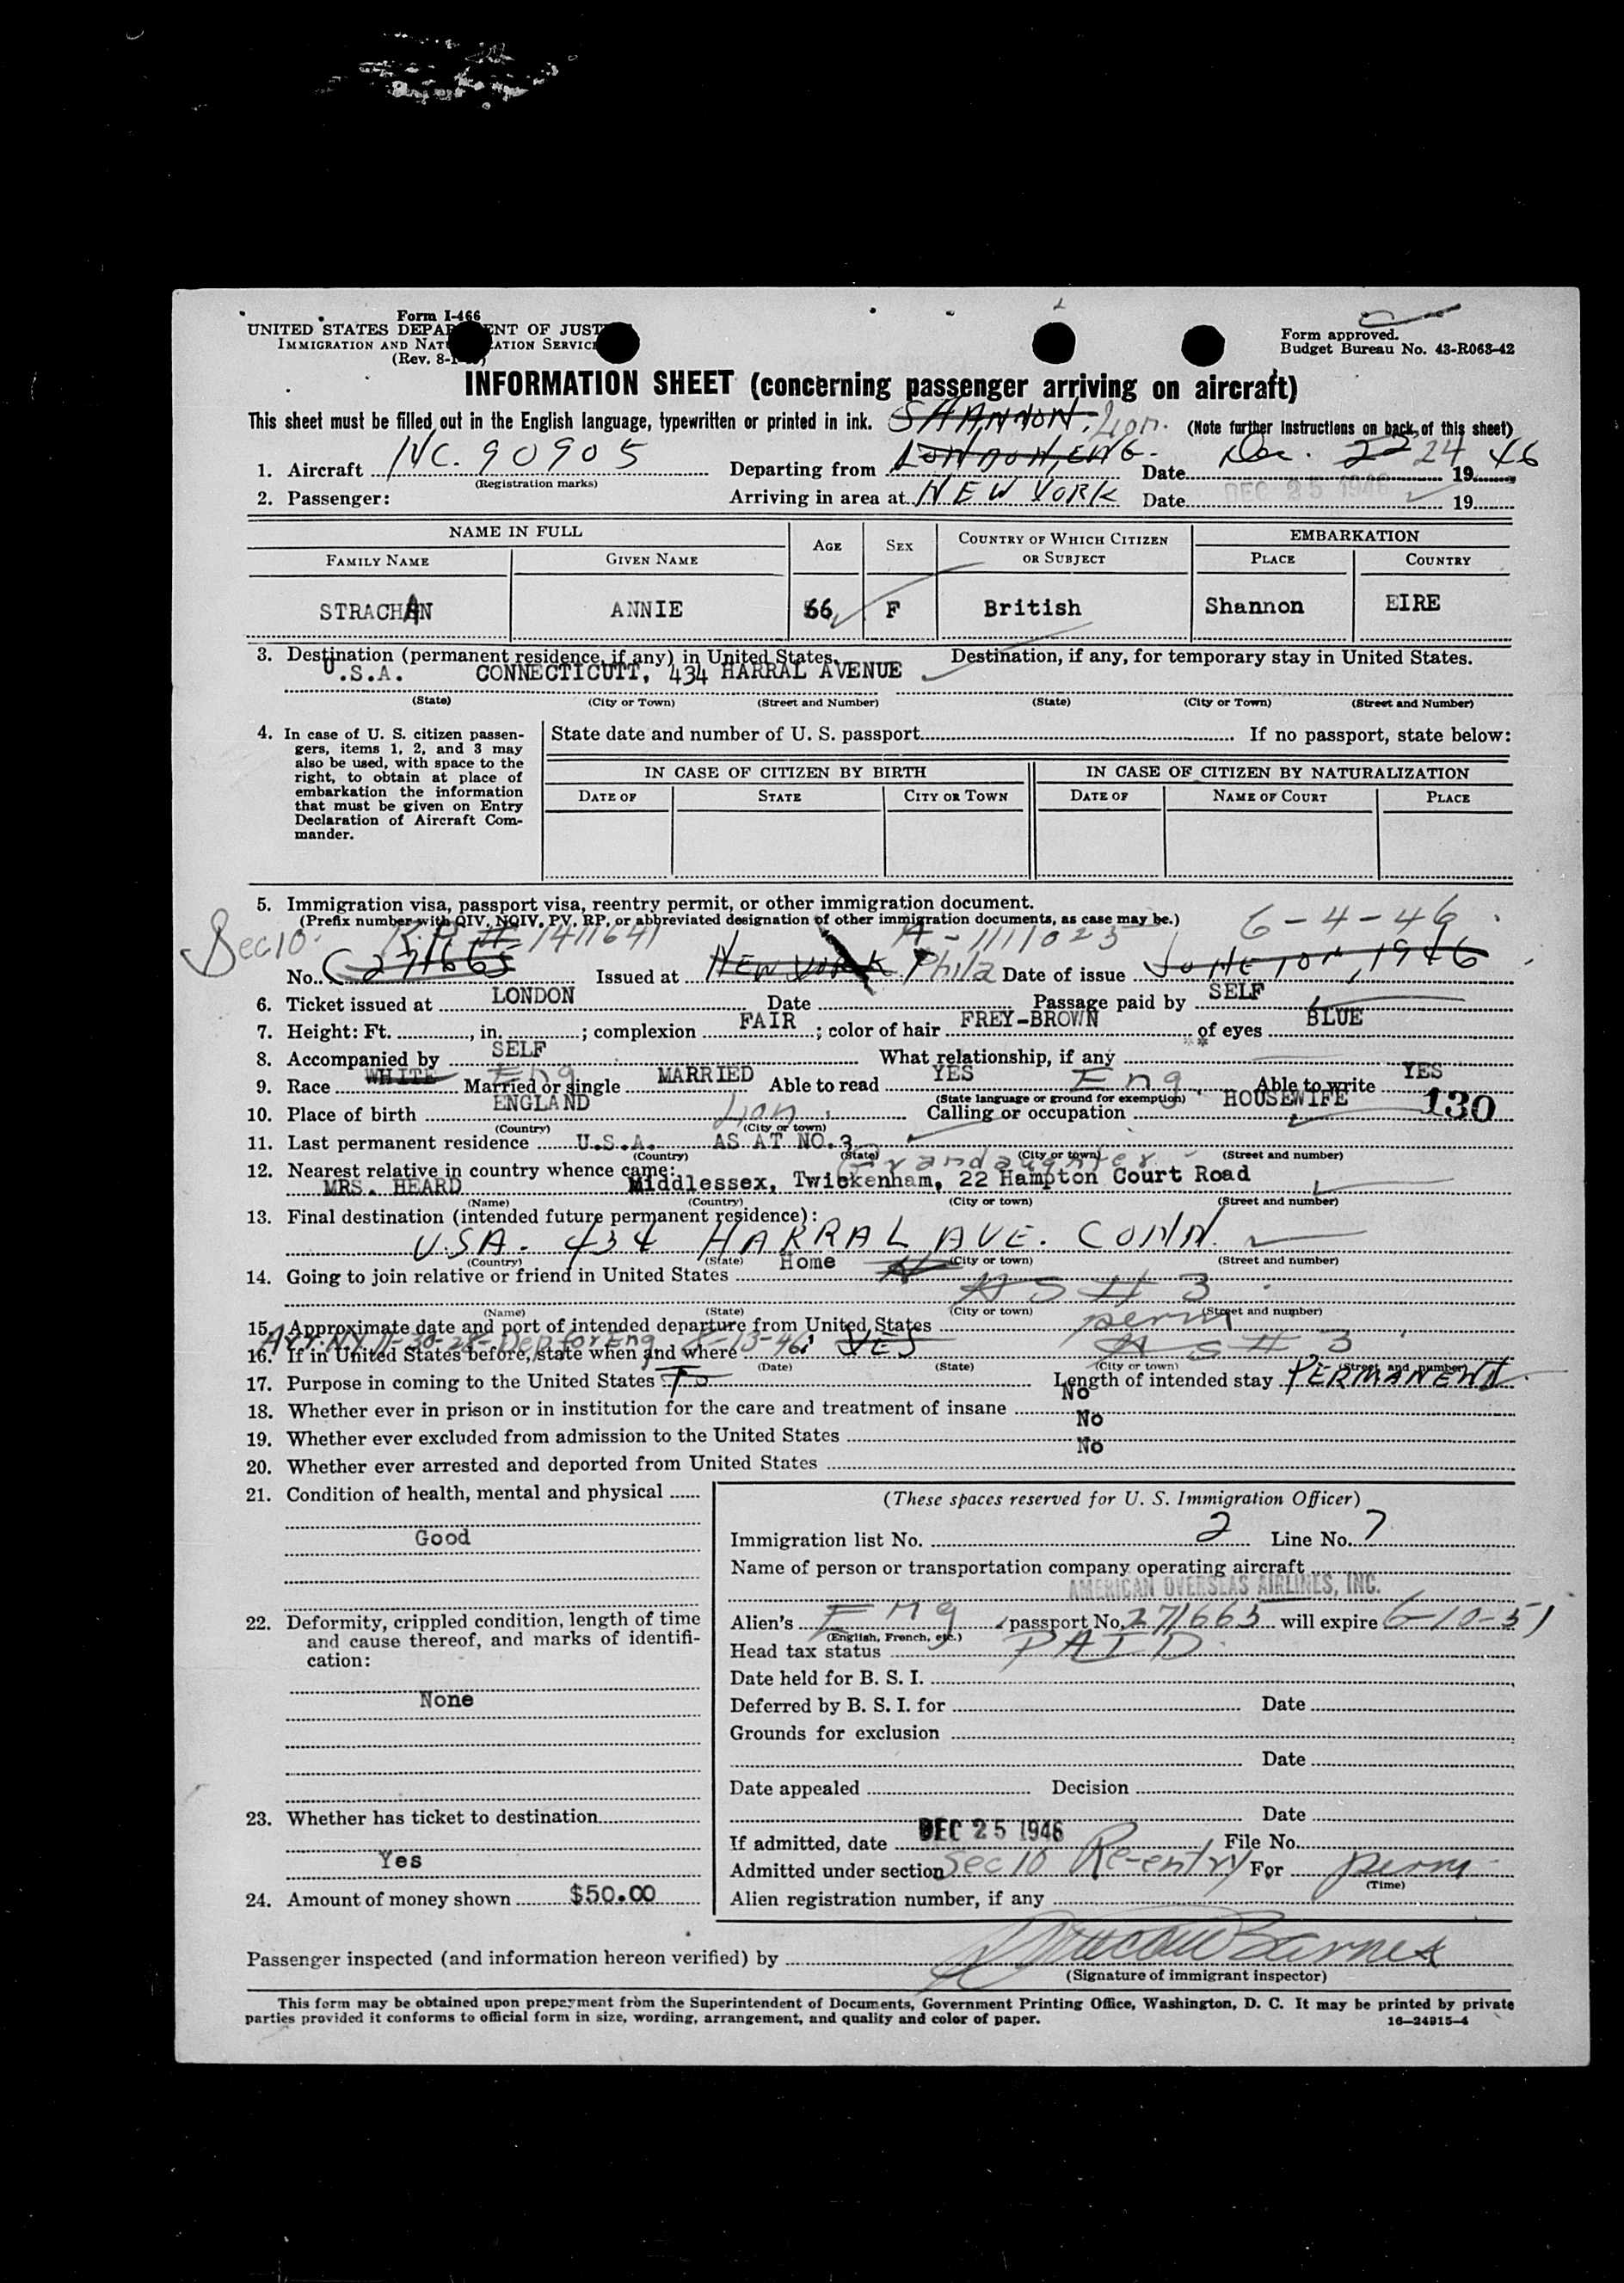 Form I-466
UNITED STATES DEPARTMENT OF JUSTICE
IMMIGRATION AND NATURALIZATION SERVICE
(Rev. 8-1-
Form approved.
Budget Bureau No. 43-R063-42
INFORMATION SHEET (concerning passenger arriving on aircraft)
This sheet must be filled out in the English language, typewritten or printed in ink. SHANNON. Lon. (Note further instructions on back of this sheet)
1. Aircraft NC. 90905 Departing from LONDON, ENG. Date Dec. 22 24 19 46
(Registration marks)
2. Passenger: Arriving in area at NEW YORK Date DEC 25 1946 19
NAME IN FULL AGE SEX COUNTRY OF WHICH CITIZEN OR SUBJECT EMBARKATION
FAMILY NAME GIVEN NAME PLACE COUNTRY
STRACHAN ANNIE 66 F British Shannon EIRE
3. Destination (permanent residence, if any) in United States. Destination, if any, for temporary stay in United States.
U.S.A. CONNECTICUTT, 434 HARRAL AVENUE
(State) (City or Town) (Street and Number) (State) (City or Town) (Street and Number)
4. In case of U. S. citizen passengers, items 1, 2, and 3 may also be used, with space to the right, to obtain at place of embarkation the information that must be given on Entry Declaration of Aircraft Commander.
State date and number of U. S. passport If no passport, state below:
IN CASE OF CITIZEN BY BIRTH IN CASE OF CITIZEN BY NATURALIZATION
DATE OF STATE CITY OR TOWN DATE OF NAME OF COURT PLACE
5. Immigration visa, passport visa, reentry permit, or other immigration document.
(Prefix number with QIV, NQIV, PV, RP, or abbreviated designation of other immigration documents, as case may be.) 6-4-46
Sec 10. R.P. # 1411641 A-1111025
No. C 271665 Issued at NEW YORK Phila Date of issue JUNE 10TH, 1946
6. Ticket issued at LONDON Date Passage paid by SELF
7. Height: Ft. , in. ; complexion FAIR ; color of hair FREY-BROWN of eyes BLUE
8. Accompanied by SELF What relationship, if any
9. Race WHITE Eng Married or single MARRIED Able to read YES Eng Able to write YES
(State language or ground for exemption)
10. Place of birth ENGLAND Lon. Calling or occupation HOUSEWIFE 130
(Country) (City or town)
11. Last permanent residence U.S.A. AS AT NO.3
(Country) (State) (City or town) (Street and number)
12. Nearest relative in country whence came: Grandaughter
MRS. HEARD Middlessex, Twickenham, 22 Hampton Court Road
(Name) (Country) (City or town) (Street and number)
13. Final destination (intended future permanent residence):
U.S.A. 434 HARRAL AVE. CONN.
(Country) (State) (City or town) (Street and number)
14. Going to join relative or friend in United States Home
AS # 3
(Name) (State) (City or town) (Street and number)
15. Approximate date and port of intended departure from United States perm
Arr. NY 11-30-28- Dep for Eng 8-13-46 YES AS # 3
16. If in United States before, state when and where
(Date) (State) (City or town) (Street and number)
17. Purpose in coming to the United States To Length of intended stay PERMANENT
18. Whether ever in prison or in institution for the care and treatment of insane No
19. Whether ever excluded from admission to the United States No
20. Whether ever arrested and deported from United States No
21. Condition of health, mental and physical
Good
22. Deformity, crippled condition, length of time and cause thereof, and marks of identification:
None
23. Whether has ticket to destination
Yes
24. Amount of money shown $50.00
(These spaces reserved for U. S. Immigration Officer)
Immigration list No. 2 Line No. 7
Name of person or transportation company operating aircraft
AMERICAN OVERSEAS AIRLINES, INC.
Alien's Eng passport No. 271665 will expire 6-10-51
(English, French, etc.)
Head tax status PAID
Date held for B. S. I.
Deferred by B. S. I. for Date
Grounds for exclusion
Date
Date appealed Decision
Date
If admitted, date DEC 25 1946 File No.
Admitted under section Sec 10 Re-entry For perm
(Time)
Alien registration number, if any
Passenger inspected (and information hereon verified) by Barnes
(Signature of immigrant inspector)
This form may be obtained upon prepayment from the Superintendent of Documents, Government Printing Office, Washington, D. C. It may be printed by private
parties provided it conforms to official form in size, wording, arrangement, and quality and color of paper. 16—24915-4